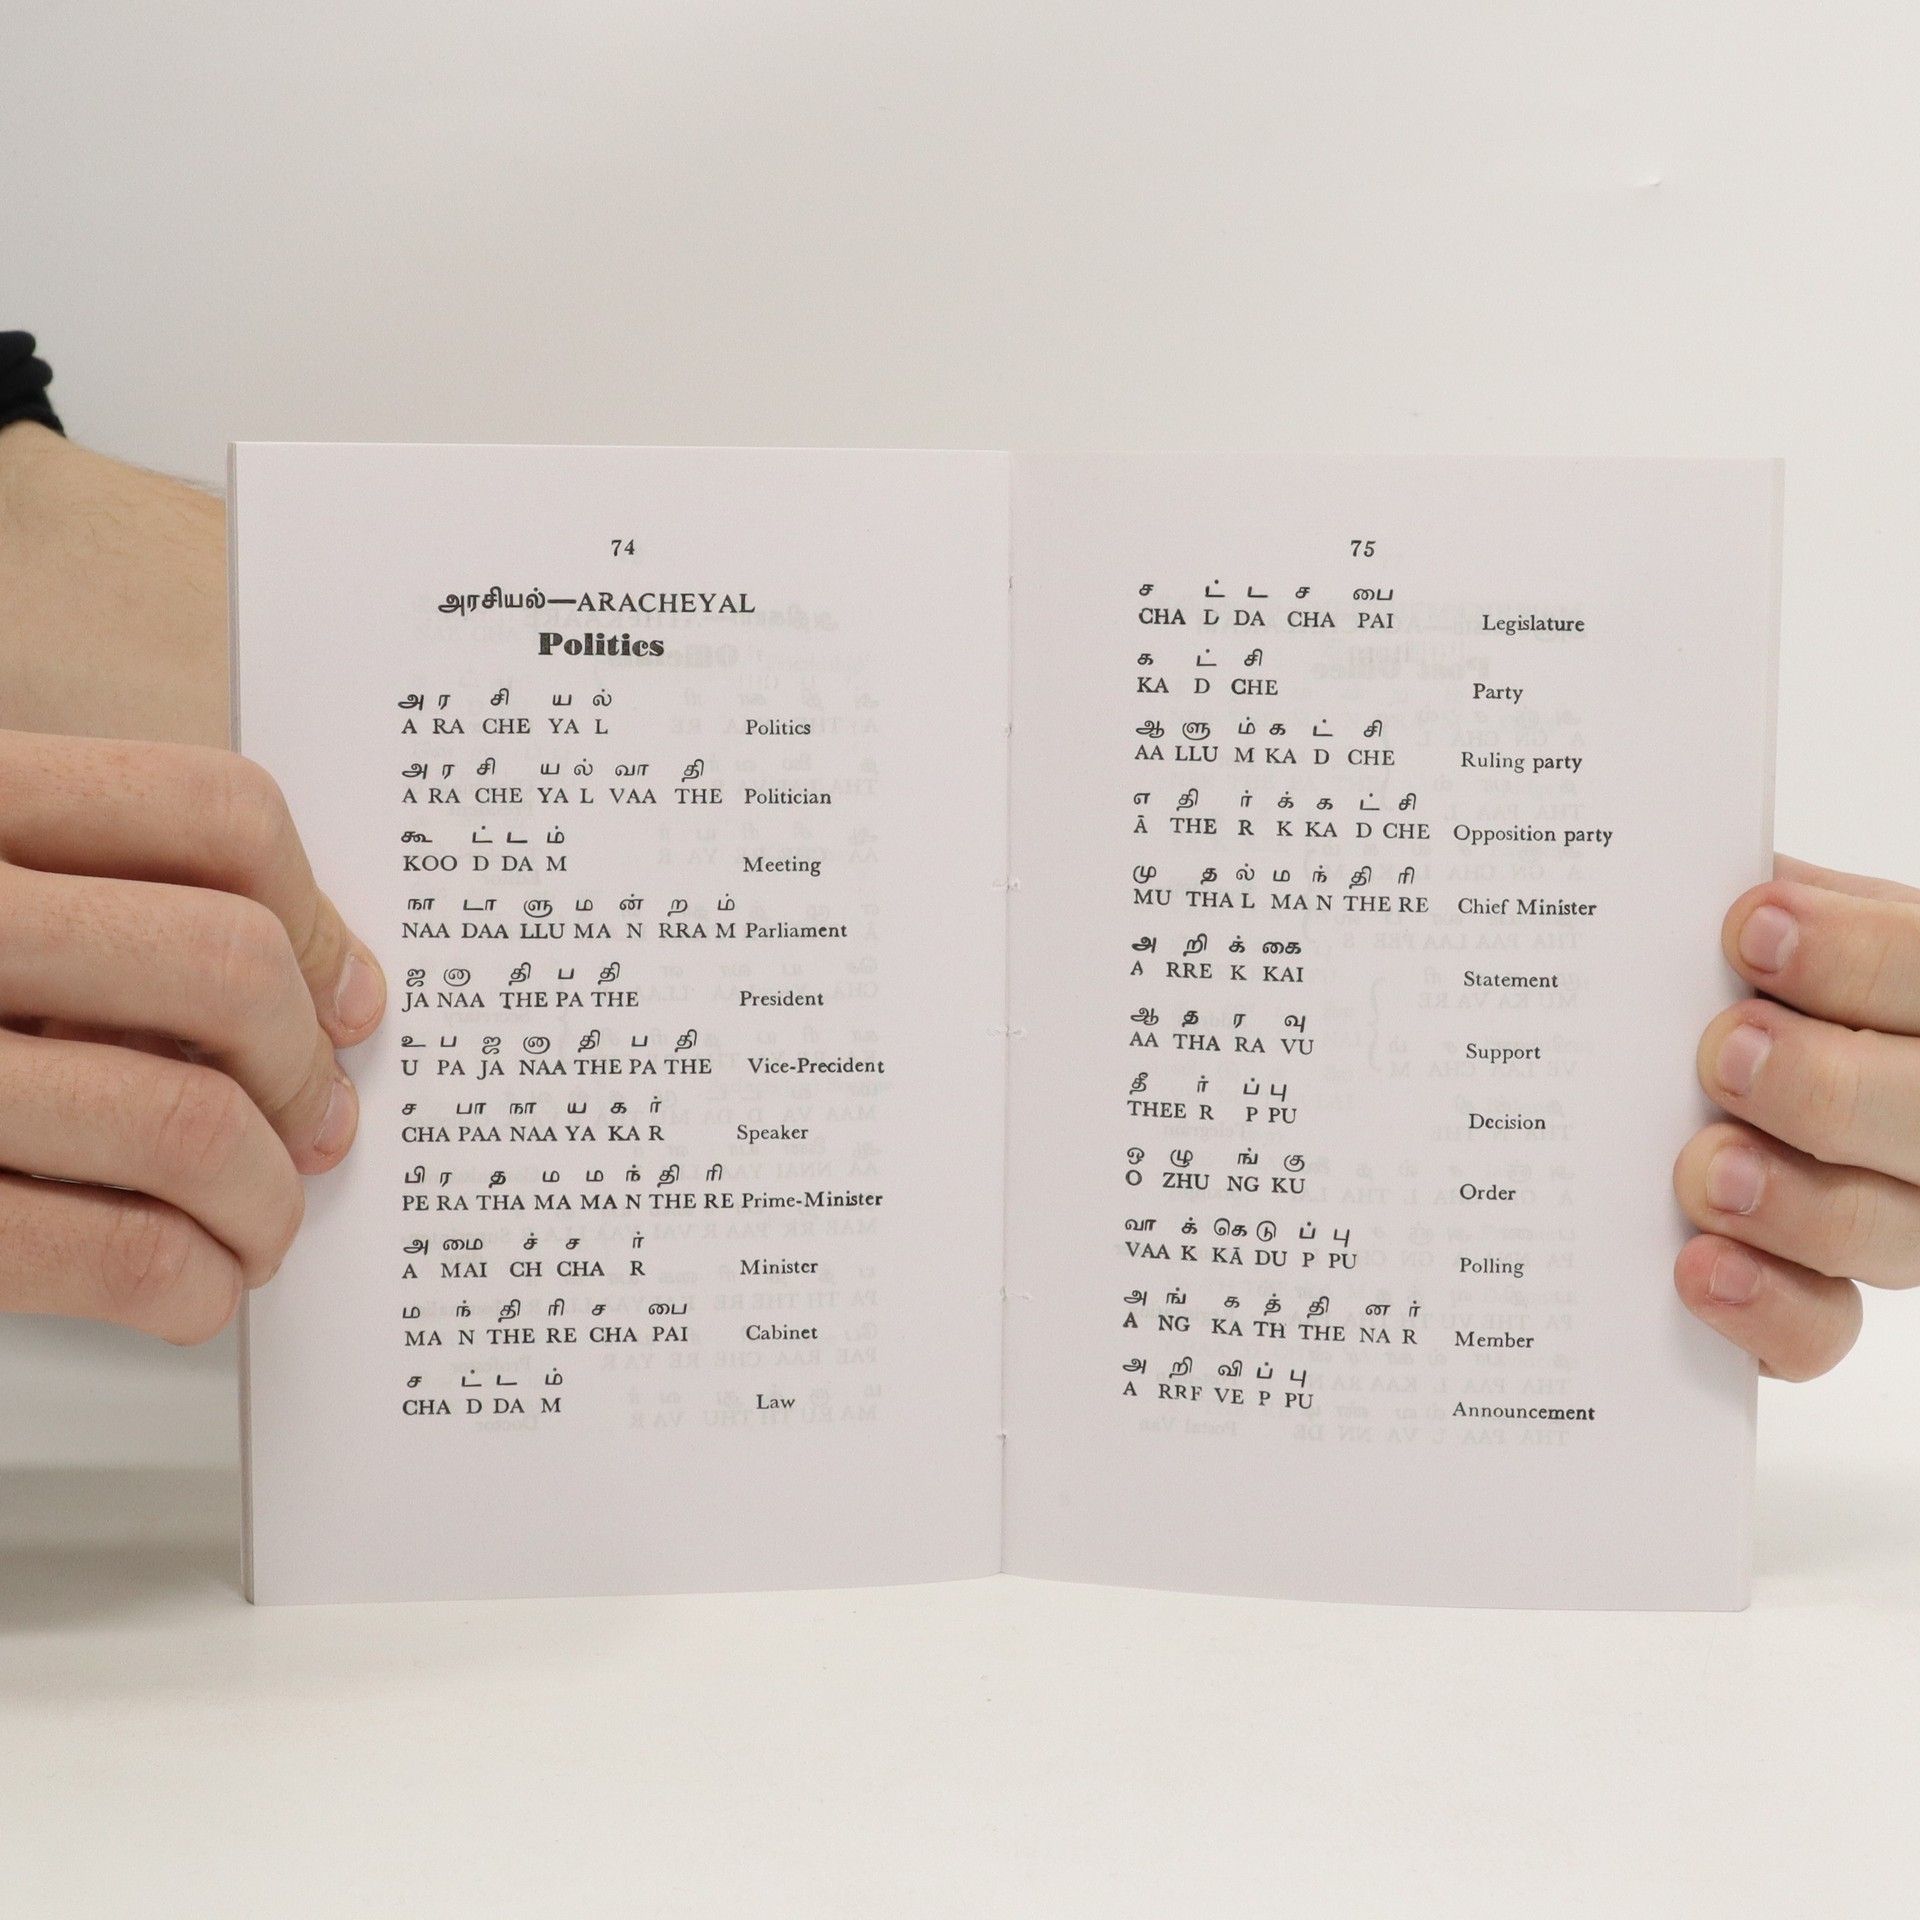 74
அரசியல்—ARACHEYAL
Politics
அ ர சி ய ல்
A RA CHE YA L Politics
அ ர சி ய ல் வா தி
A RA CHE YA L VAA THE Politician
கூ ட் ட ம்
KOO D DA M Meeting
நா டா ளு ம ன் ற ம்
NAA DAA LLU MA N RRA M Parliament
ஜ னா தி ப தி
JA NAA THE PA THE President
உ ப ஜ னா தி ப தி
U PA JA NAA THE PA THE Vice-Precident
ச பா நா ய க ர்
CHA PAA NAA YA KA R Speaker
பி ர த ம ம ந் தி ரி
PE RA THA MA MA N THE RE Prime-Minister
அ மை ச் ச ர்
A MAI CH CHA R Minister
ம ந் தி ரி ச பை
MA N THE RE CHA PAI Cabinet
ச ட் ட ம்
CHA D DA M Law
75
ச ட் ட ச பை
CHA D DA CHA PAI Legislature
க ட் சி
KA D CHE Party
ஆ ளு ம் க ட் சி
AA LLU M KA D CHE Ruling party
எ தி ர் க் க ட் சி
Ā THE R K KA D CHE Opposition party
மு த ல் ம ந் தி ரி
MU THA L MA N THE RE Chief Minister
அ றி க் கை
A RRE K KAI Statement
ஆ த ர வு
AA THA RA VU Support
தீ ர் ப் பு
THEE R P PU Decision
ஒ ழு ங் கு
O ZHU NG KU Order
வா க் கெ டு ப் பு
VAA K KĀ DU P PU Polling
அ ங் க த் தி ன ர்
A NG KA TH THE NA R Member
அ றி வி ப் பு
A RRF VE P PU Announcement